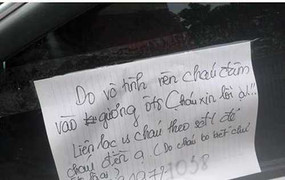 Do vô tình nên cháu đâm
vào gương ôtô Cháu xin lỗi ạ!!
Liên lạc vs cháu theo số đt để
cháu đền ạ (Do cháu ko biết chủ
1058